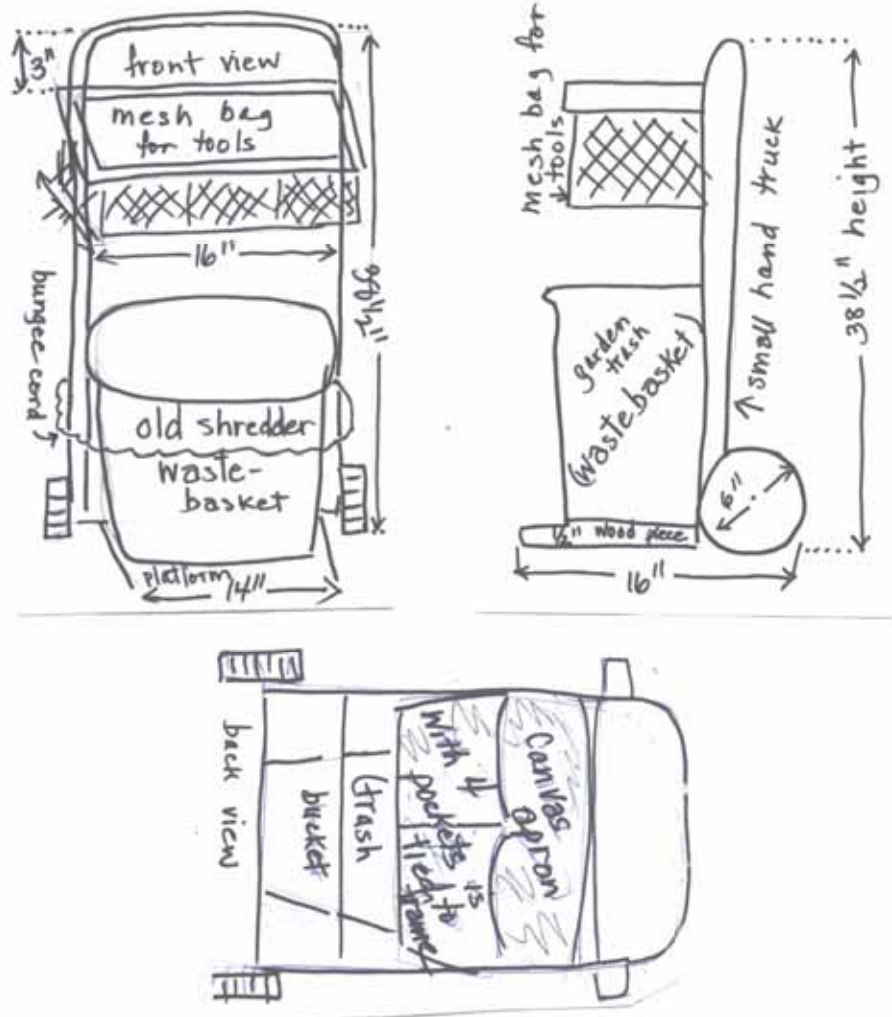 3"
front view
mesh bag
for tools
16"
38½"
bungee cord
old shredder
waste-
basket
platform
14"
mesh bag for
tools
small hand truck
38½" height
garden
trash
(wastebasket)
6"
½" wood piece
16"
back view
bucket
(trash
Canvas
apron
With 4
pockets is
tied to
frame